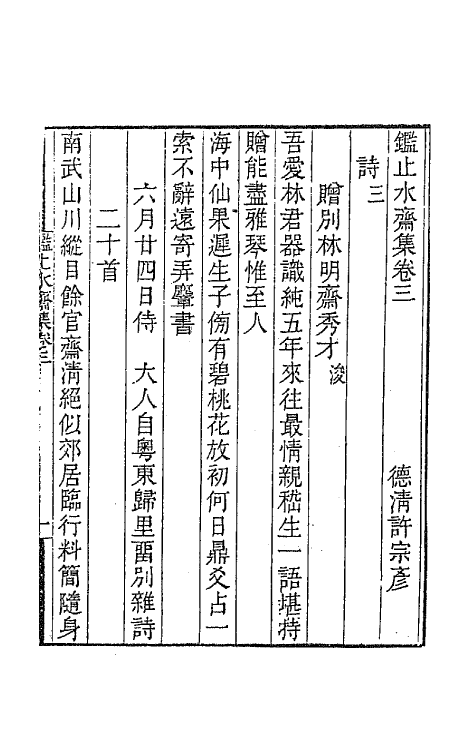 鑑止水齋集卷三
德淸許宗彥
詩三
贈別林明齋秀才浚
吾愛林君器識純五年來往最情親嵇生一語堪持
贈能盡雅琴惟至人
海中仙果遲生子傍有碧桃花放初何日鼎爻占一
索不辭遠寄弄麞書
六月廿四日侍　大人自粵東歸里畱別雜詩
二十首
南武山川縱目餘官齋淸絕似郊居臨行料簡隨身
鑑止水齋集卷三
一